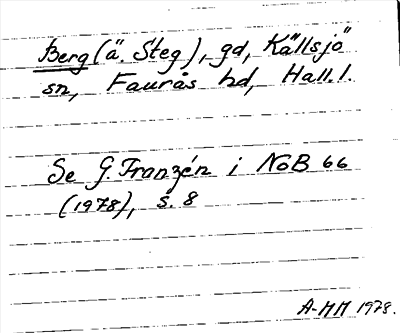 Berg (ä. Steg), gd, Källsjö
sn, Faurås hd, Hall. l.
Se G. Franzén i NoB 66
(1978), s. 8
A-MM 1978.